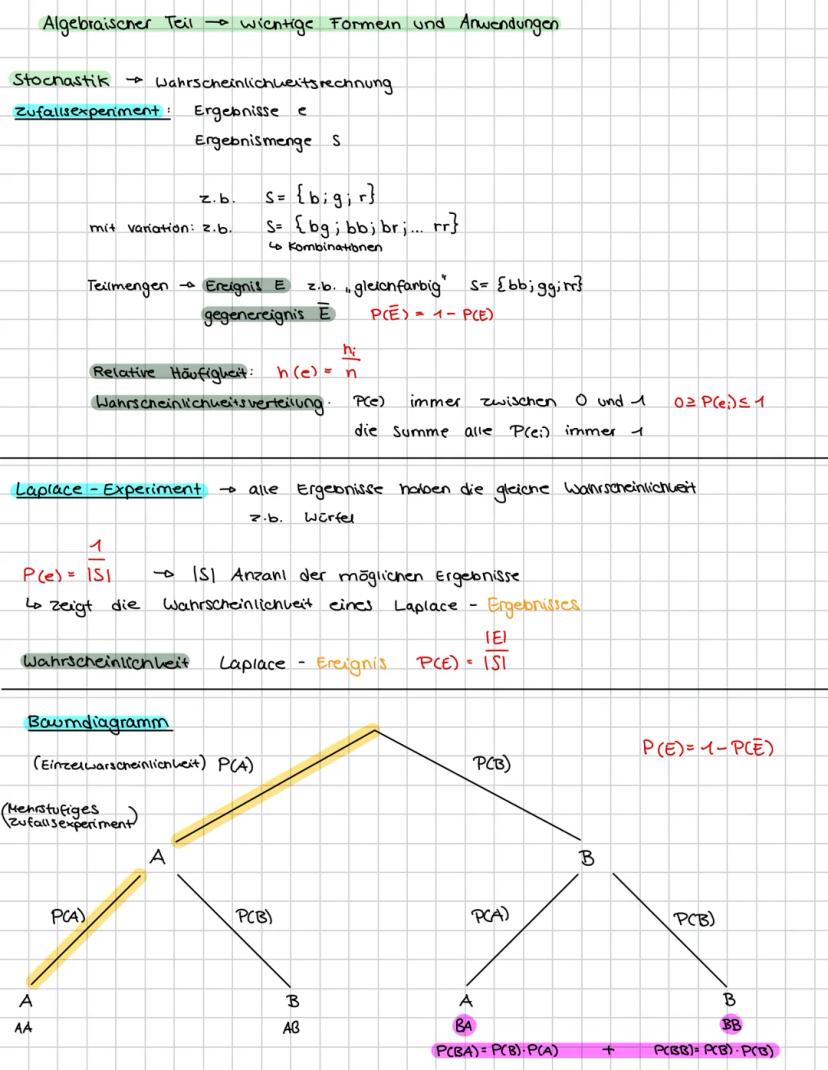 Algebraischer Teil → wichtige Formeln und Anwendungen
Stochastik → Wahrscheinlichkeitsrechnung
Zufallsexperiment: Ergebnisse e
Ergebnismenge S
z.b. S= {b;g;r}
mit variation: z.b. S= {bg;bb;br;... rr}
↳ Kombinationen
Teilmengen → Ereignis E z.b. „gleichfarbig" S= {bb;gg;rr}
gegenereignis E̅ P(E̅) = 1 - P(E)
Relative Häufigkeit: h(e) = hi/n
Wahrscheinlichkeitsverteilung. P(e) immer zwischen 0 und 1 0≥P(ei)≤1
die Summe alle P(ei) immer 1
Laplace - Experiment → alle Ergebnisse haben die gleiche Wahrscheinlichkeit
z.b. Würfel
P(e) = 1/|S| → |S| Anzahl der möglichen Ergebnisse
↳ zeigt die Wahrscheinlichkeit eines Laplace - Ergebnisses
Wahrscheinlichkeit Laplace - Ereignis P(E) = |E|/|S|
Baumdiagramm
P(E) = 1-P(E̅)
(Einzelwarscheinlichkeit) P(A) P(B)
(Mehrstufiges
Zufallsexperiment)
A B
P(A) P(B) P(A) P(B)
A B A B
AA AB BA BB
P(BA) = P(B)·P(A) + P(BB) = P(B)·P(B)